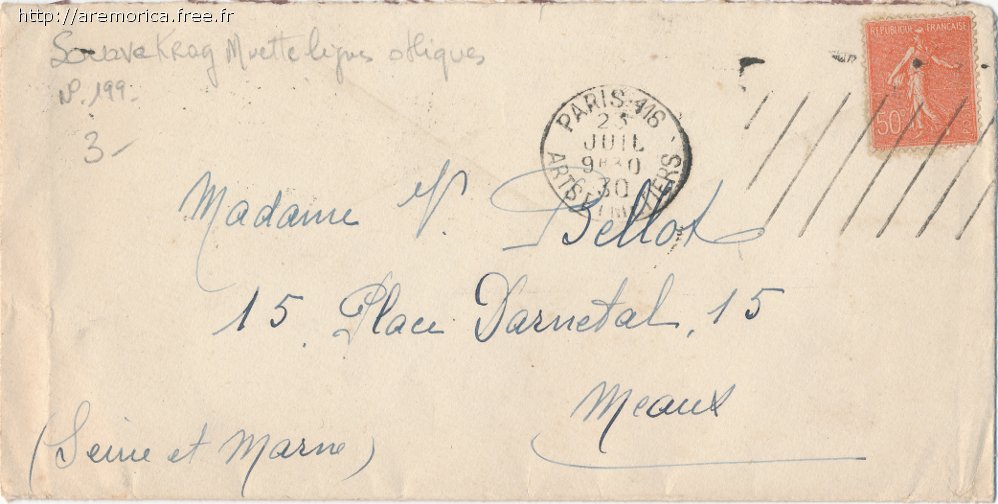 http://aremorica.free.fr
Krag Muette lignes obliques
N°. 199.
3-
REPUBLIQUE FRANÇAISE
50
PARIS. 116
23
JUIL
9H30
30
ARTS ET METIERS
Madame V. Bellot
15 Place Darnetal, 15
Meaux
(Seine et Marne)